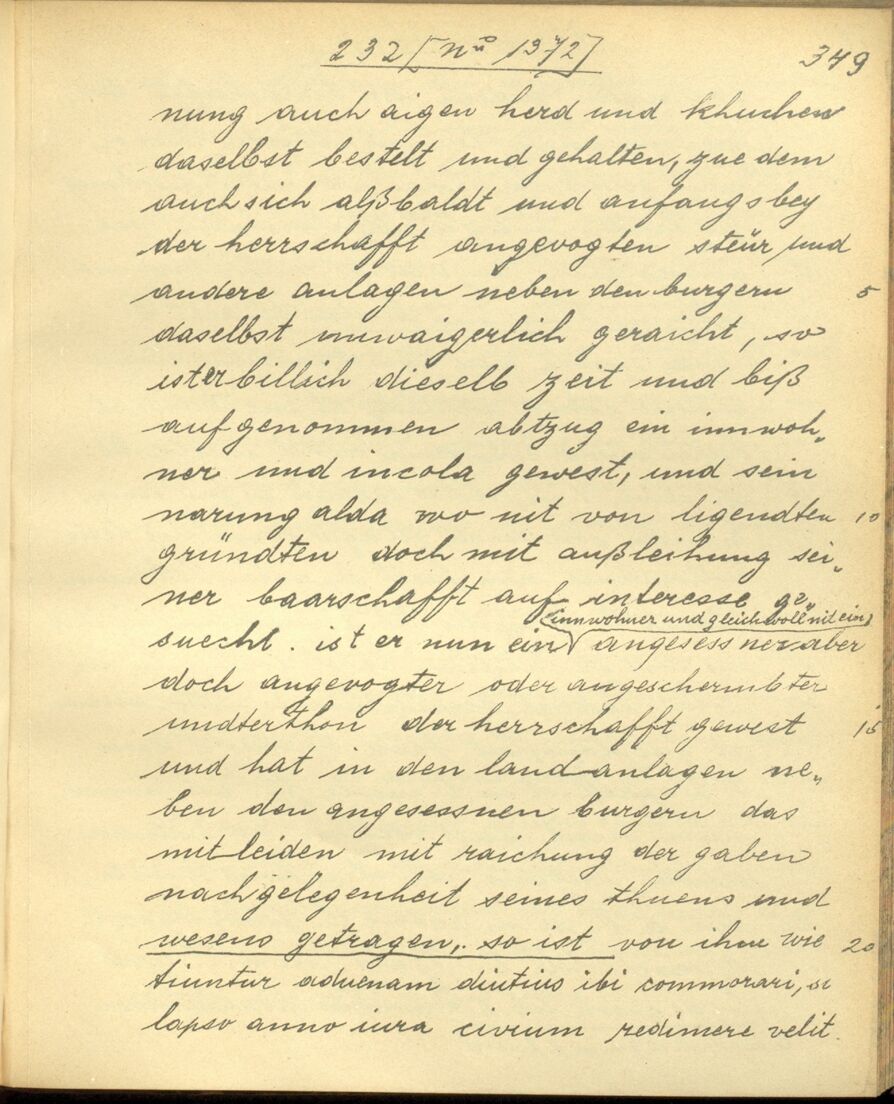 232 [nro 1372] 349
nung auch aigen herd und khuchen
daselbst bestelt und gehalten, zue dem
auch sich alßbaldt und anfangs bey
der herrschafft angevogten steür und
andere anlagen neben den burgern 5
daselbst unwaigerlich geraicht, so
ist er billich dieselb zeit und biß
auf genommen abtzug ein innwoh„
ner und incola gewest, und sein
narung alda wo nit von ligendten 10
gründten doch mit außleihung sei„
ner baarschafft auf interesse ge„
(innwohner und gleichwoll nit ein)
suecht. ist er nun ein angesessner aber
doch angevogter oder angeschermbter
undterthon der herrschafft gewest 15
und hat in den landanlagen ne„
ben den angesessnen burgern das
mitleiden mit raichung der gaben
nach gelegenheit seines thuens und
wesens getragen, so ist von ihm wie 20
tiuntur advenam diutius ibi commorari,
lapso anno iura civium redimere velit.